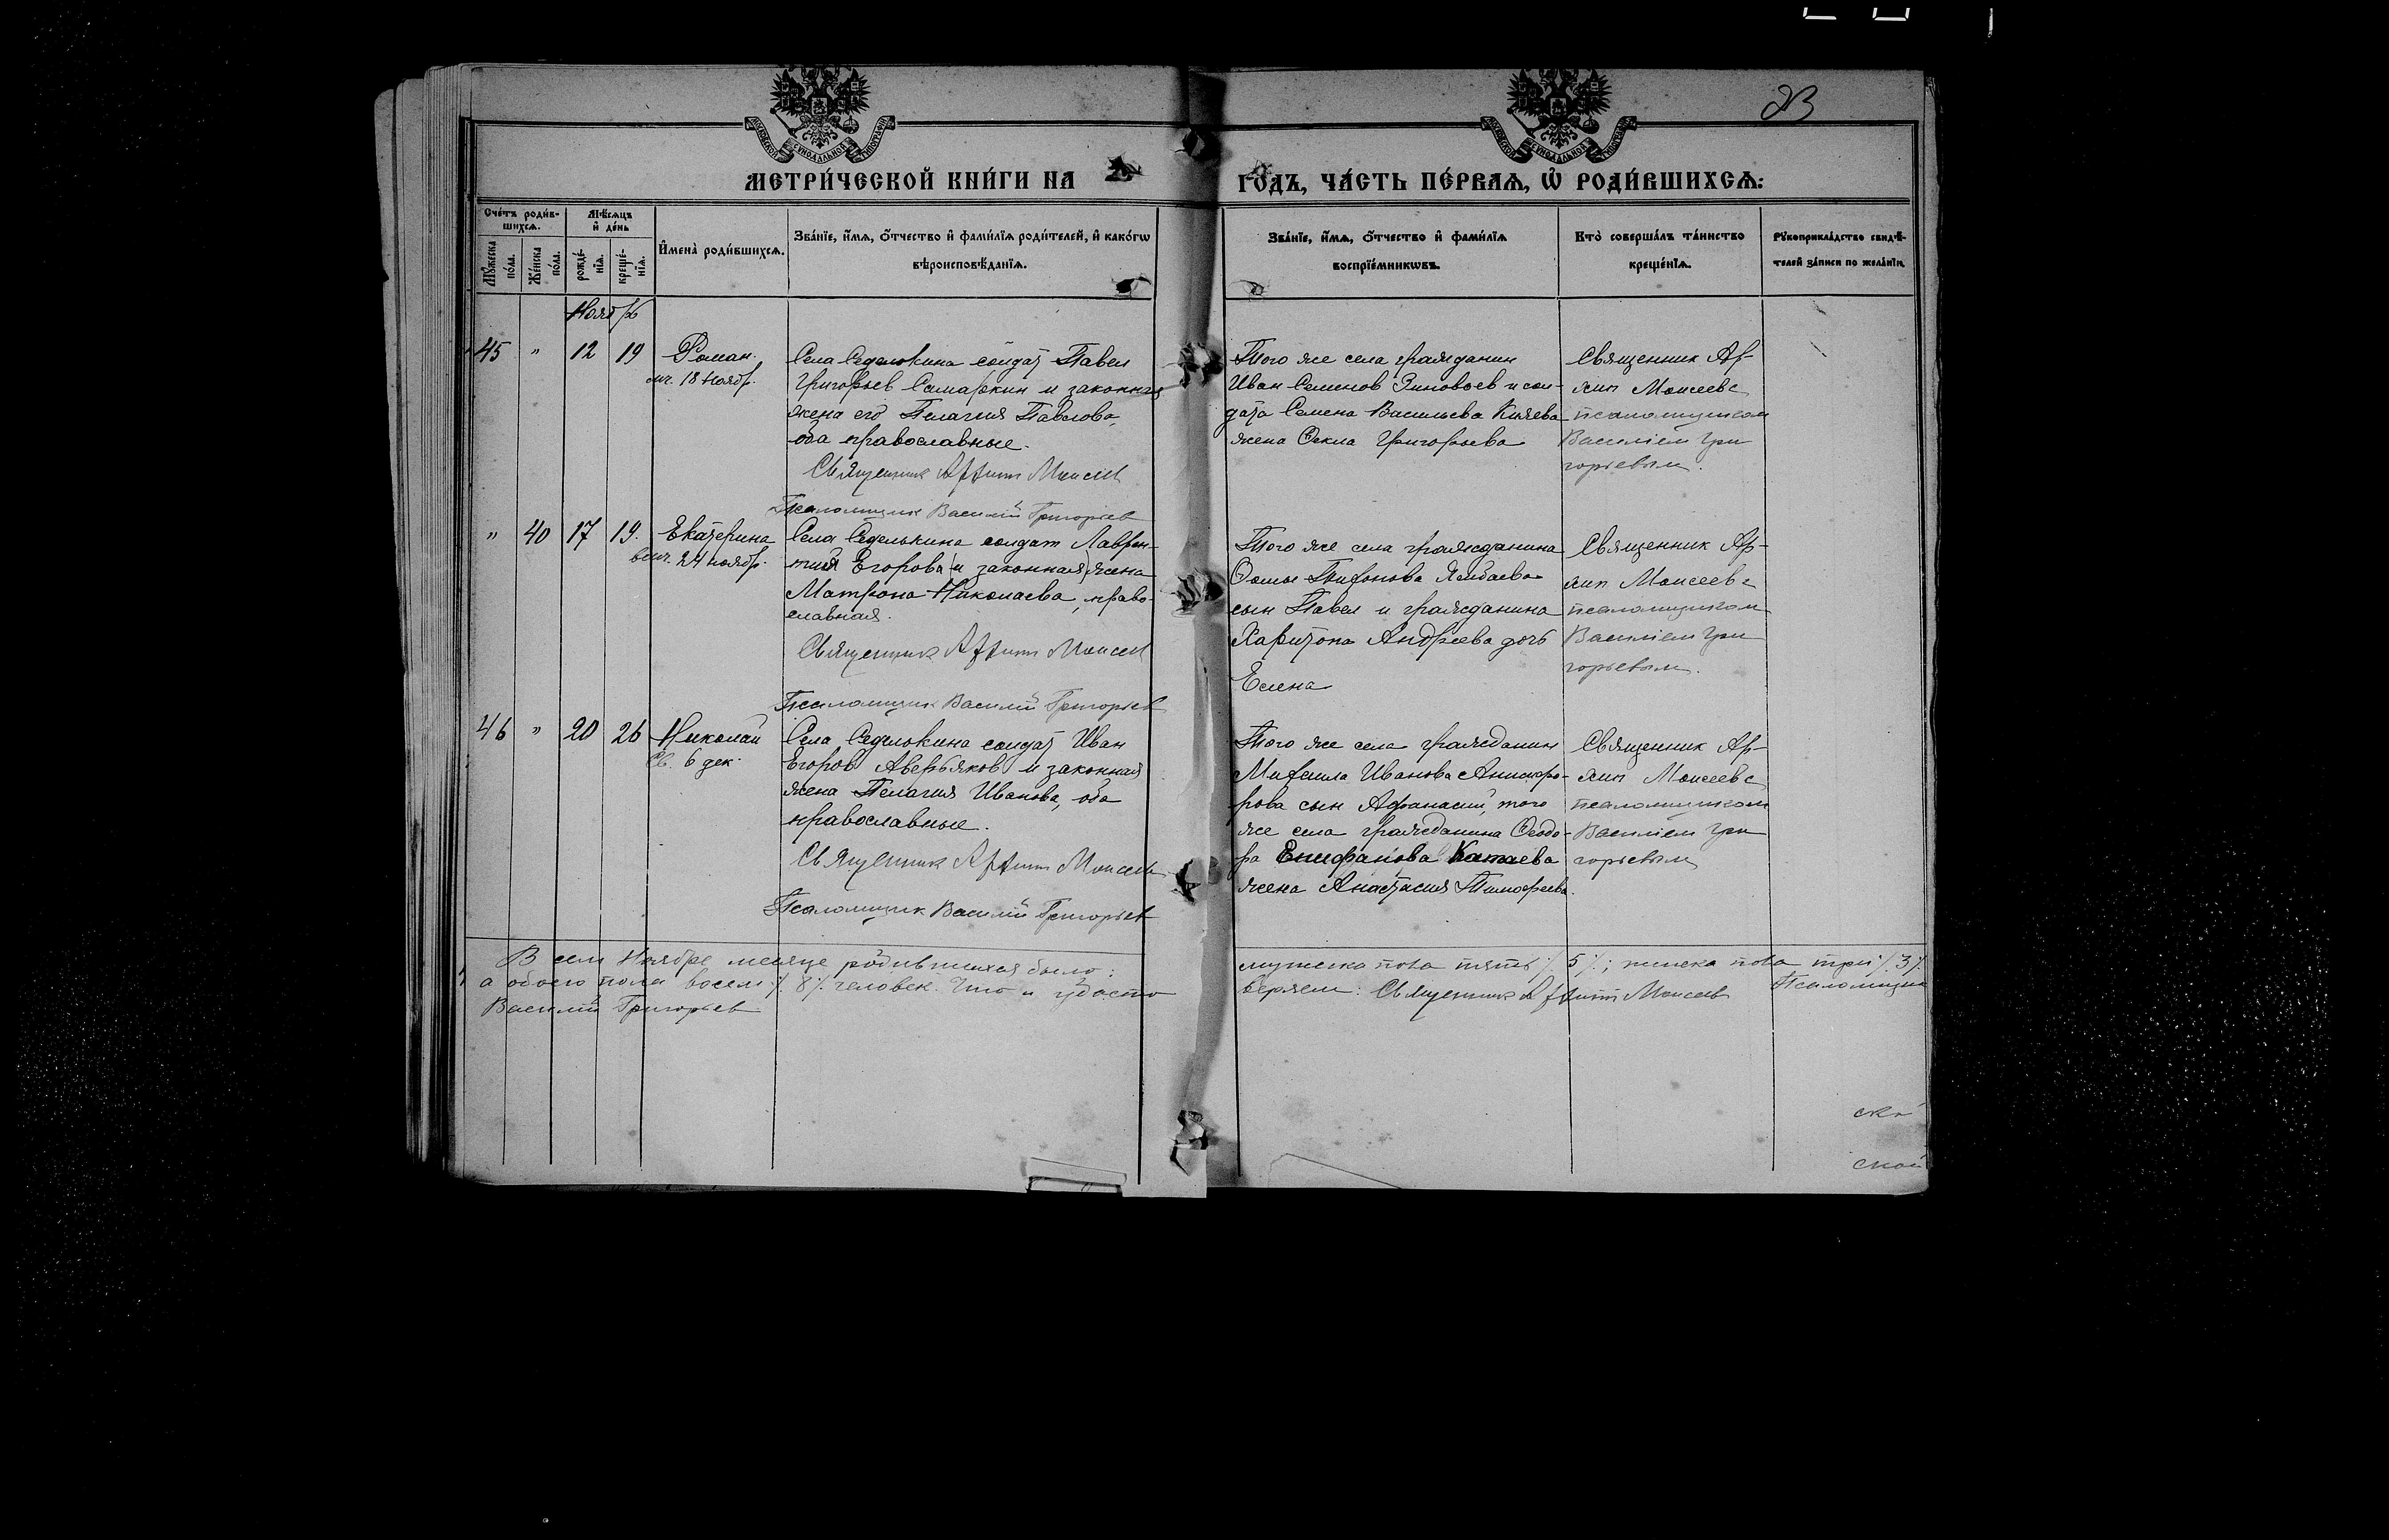 23
МОСКОВСКОЙ СѴНОДАЛЬНОЙ ТИПОГРАФІИ
МОСКОВСКОЙ СѴНОДАЛЬНОЙ ТИПОГРАФІИ
МЕТРИ́ЧЕСКОЙ КНИ́ГИ НА
ГО́ДЪ, ЧА́СТЬ ПЕ́РВАѦ, Ѡ҆ РОДИ́ВШИХСѦ:
Сче́тъ роди́в-
шихсѧ.
Мꙋ́жеска по́ла.
Же́нска по́ла.
Мѣ́сѧцъ и҆ де́нь
рожде́-нїѧ.
креще́-нїѧ.
И҆мена̀ роди́вшихсѧ.
Зва́нїе, и҆́мѧ, ѻ҆́тчество и҆ фами́лїѧ роди́телей, и҆ како́гѡ
вѣроисповѣ́данїѧ.
Зва́нїе, и҆́мѧ, ѻ҆́тчество и҆ фами́лїѧ
воспрїе́мникѡвъ.
Кто̀ соверша́лъ та́инство
креще́нїѧ.
Рꙋкоприкла́дство свидѣ́-
телей за́писи по жела́нїю.
Ноябрь
45 " 12 19 Роман.
мч. 18 ноябр.
Села Седелькина солдат Павел
Григорьев Самаркин и законная
жена его Пелагия Павлова,
оба православные.
Священник Моисеев
Псаломщик Василий Григорьев
Того же села гражданин
Иван Семенов Зиновьев и сол-
дата Семена Васильева Князева
жена Фекла Григорьева
Священник Ар-
Моисеевс
псаломщиком
Василием Гри
горьевым.
" 40 17 19. Екатерина
велч. 24 ноябр.
Села Седелькина солдат Лаврен-
тия Егорова (и законная) жена
Матрона Николаева, право-
славная.
Священник Моисеев
Псаломщик Василий Григорьев
Того же села гражданина
Фомы сын Павел и гражданина
Харитона Андреева дочь
Елена
Священник Ар-
Моисеевс
псаломщиком
Василием Гри
горьевым.
46 " 20 26 Николай
Св. 6 дек.
Села Седелькина солдат Иван
Егоров Аверьяков и законная
жена Пелагия Иванова, оба
православные.
Священник Моисеев
Псаломщик Василий Григорьев
Того же села гражданин
Михаила Иванова
сын Афанасий, того
же села гражданина Феодо-
ра Епифанова Катаева
жена Анастасия Тимофеева.
Священник Ар-
Моисеевс
псаломщиком
Василием Гри
горьевым
В сем Ноябре месяце родившихся было: мужеска пола пять ٪ 5 ٪; женска пола три ٪ 3 ٪
а обоего пола восемь ٪ 8 ٪ человек. Что и удосто
веряем: Священник Моисеев Псаломщик
Василий Григорьев
ской